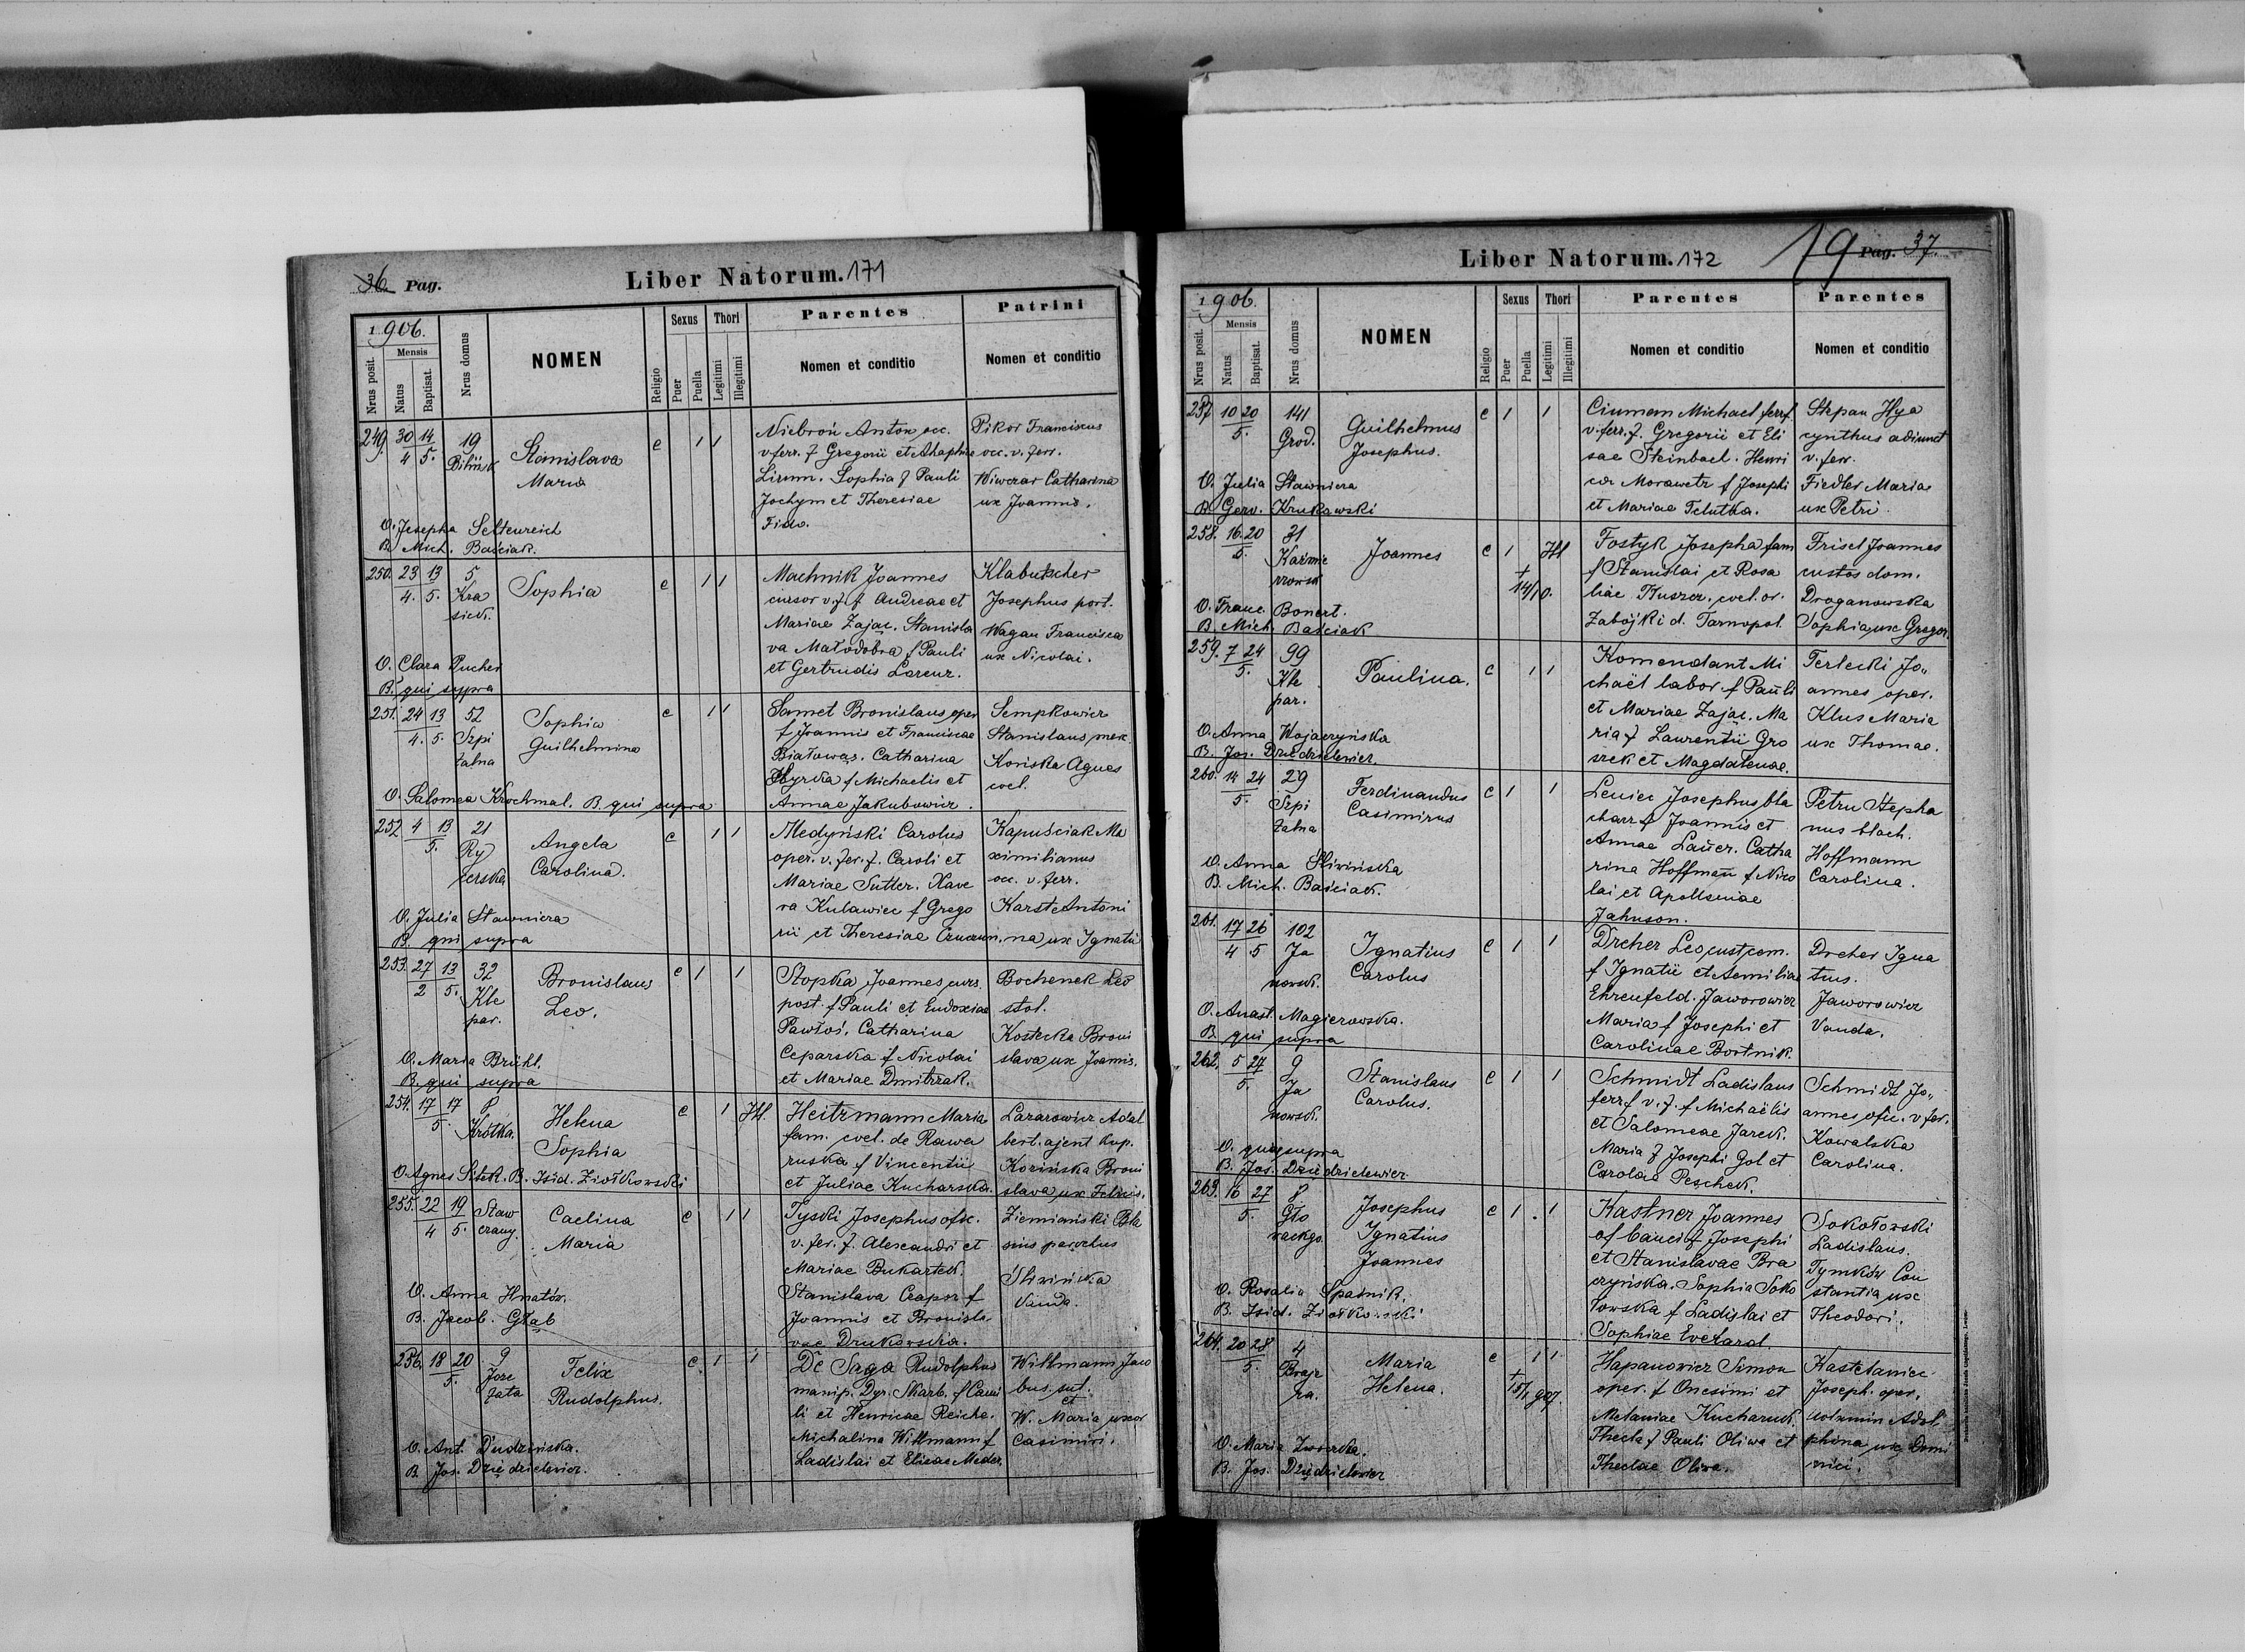 36. Pag.
Liber Natorum. 171
1906.
Mensis
Nrus posit.
Natus
Baptisat.
Nrus domus
NOMEN
Religio
Sexus
Puer
Puella
Thori
Legitimi
Illegitimi
Parentes
Nomen et conditio
Patrini
Nomen et conditio
249. 30/4 14/5. 19 Bilińsk
Stanislava
Maria
c 1 1
Niebroń Anton occ.
v. ferr. f Gregorii et Ahaphiae
Lirmm. Sophia f Pauli
Jochym et Theresiae
Pikor Franciscus
occ. v. ferr.
Wiwczar Catharina
ux Joannis.
O. Josepha Seltenreich
B. Mich. Baściak.
250. 23/4. 13/5. 5 Kra
sick.
Sophia
c 1 1
Machnik Joannes
cursor v. f. f Andreae et
Mariae Zając. Stanisla
va Małodobra f Pauli
et Gertrudis Lorenz.
Klabutscher
Josephus port.
Wagan Francisca
ux Nicolai.
O. Clara Pucher
B. qui supra
251. 24/4. 13/5 52
Szpi
talna
Sophia
Guilhelmina
c 1 1
Samet Bronislaus oper
f Joannis et Franciscae
Białowąs. Catharina
Hyrka f Michaelis et
Annae Jakubowicz.
Sempkowicz
Stanislaus mek.
Końska Agnes
coel.
O. Salomea Krochmal. B. qui supra
252 4 13/5. 21
Ry
cerska
Angela
Carolina.
c 1 1
Medyński Carolus
oper. v. fer. f. Caroli et
Mariae Sutter. Xave
ra Kulawiec f Grego
rii et Theresiae
Kapuściak Ma
ximilianus
occ. v. ferr.
Karst Antoni
na ux Ignatii
O. Julia Stawniera
B. qui supra
253. 27/2 13/5. 32
Kle
par.
Bronislaus
Leo.
c 1 1
Stopka Joannes curs.
post. f Pauli et Eudoxiae
Pawłoś. Catharina
Ceparska f Nicolai
et Mariae Dmitrzak.
Bochenek Leo
stol.
Kostecka Broni
slava ux Joannis.
O. Maria Brühl.
B. qui supra
254. 17 17/5. 8
Krótka.
Helena
Sophia
c 1 Ill.
Heitzmann Maria
fam. coel. de Rawa
ruska f Vincentii
et Juliae Kucharska.
Lazarowicz Adal
bert. ajent kup.
Kozińska Broni
slava ux Felicis.
O. Agnes Sitek. B. Isid. Ziołkowski
255. 22/4 19/5. Staw
czany.
Caelina
Maria
c 1 1
Tyski Josephus ofic.
v. fer. f. Alexandri et
Mariae Bukartek.
Stanislava Czapor f
Joannis et Bronisla
vae Drukowska.
Ziemiański Bla
sius parochus
Śliwińska
Vanda.
O. Anna Hnatów.
B. Jacob. Głąb
256. 18 20/5. 9
Joze
fata
Felix
Rudolphus.
c 1 1
De Saga Rudolphus
manip. Dyr. Skarb. f Cami
li et Henricae Reiche.
Michalina Wittmann f
Ladislai et Elisae Meder.
Wittmann Jaco
bus. sut.
et
W. Maria uxor
Casimiri.
O. Ant. Dudzińska.
B. Jos. Dziędzielewicz.
Liber Natorum. 172
19 Pag. 37.
1906.
Mensis
Nrus posit.
Natus
Baptisat.
Nrus domus
NOMEN
Religio
Sexus
Puer
Puella
Thori
Legitimi
Illegitimi
Parentes
Nomen et conditio
Parentes
Nomen et conditio
257 10 20/5. 141
Grod.
Guilhelmus
Josephus.
c 1 1
Ciuman Michael ferrf.
v. ferr. f. Gregorii et Eli
sae Steinbach. Henri
ca Morawetz f Josephi
et Mariae Telutka.
Stepan Hya
cynthus adiunct
v. ferr.
Fiedler Maria
ux Petri.
O. Julia Stawniera
B. Gerv. Krukowski
258. 16. 20/5. 31
Kaźmie
rowsk
Joannes
c 1 Ill
+
14/10.
Fostyk Josepha fam
f Stanislai et Rosa
liae Kuszer. coel. or.
Zabójki d. Tarnopol.
Frisel Joannes
custos dom.
Droganowska
Sophia ux Gregor.
O. Franc. Bonert.
B. Mich. Baściak
259. 7 24/5. 99
Kle
par.
Paulina.
c 1 1
Komendant Mi
chaël labor f Pauli
et Mariae Zając. Ma
ria f Laurentii Gro
szek et Magdalenae.
Terlecki Jo„
annes oper.
Klus Maria
ux Thomae.
O. Anna Wojaczyńska
B. Jos. Dziędzielewicz.
260. 14 24/5. 29
Szpi
talna
Ferdinandus
Casimirus
c 1 1
Leniec Josephus bla
charz f Joannis et
Annae Lauer. Catha
rina Hoffmann f Nico
lai et Apolloniae
Jahnson.
Petru Stepha
nus blach.
Hoffmann
Carolina.
O. Anna Śliwińska
B. Mich. Baściak.
261. 17/4 26/5 102
Ja
nowsk.
Ignatius
Carolus
c 1 1
Dreher Leo custcom.
f Ignatii et Aemiliae
Ehrenfeld. Jaworowicz
Maria f Josephi et
Carolinae Bortnik.
Dreher Igna
tius.
Jaworowicz
Vanda.
O. Anast. Magierowska.
B. qui supra
262. 5 27/5. 9
Ja
nowsk.
Stanislaus
Carolus.
c 1 1
Schmidt Ladislaus
ferrf v. f. f Michaëlis
et Salomeae Jarek.
Maria f Josephi Gol et
Carolae Peschek.
Schmidt Jo„
annes ofic. v fer.
Kowalska
Carolina.
O. quae supra
B. Jos. Dziędzielewicz
263. 16 27/5. 8
Gło
wackgo.
Josephus
Ignatius
Joannes
c 1 1
Kastner Joannes
of banci f Josephi
et Stanislavae Bra
czyńska. Sophia Soko
łowska f Ladislai et
Sophiae Everard.
Sokołowski
Ladislaus.
Tymków Con
stantia ux
Theodori.
O. Rosalia Spaśnik.
B. Isid. Ziołkowski
264. 20 28/5. 4
Braje
ra.
Maria
Helena.
c 1 1
+
15/1 907.
Hapanowicz Simon
oper. f Onesimi et
Melaniae Kucharuk.
Thecla f Pauli Oliwa et
Theclae Oliwa.
Kasztelaniec
Joseph. oper.
Wołumin Adol
phina ux Domi
nici.
O. Maria Zworska.
B. Jos. Dziędzielewicz